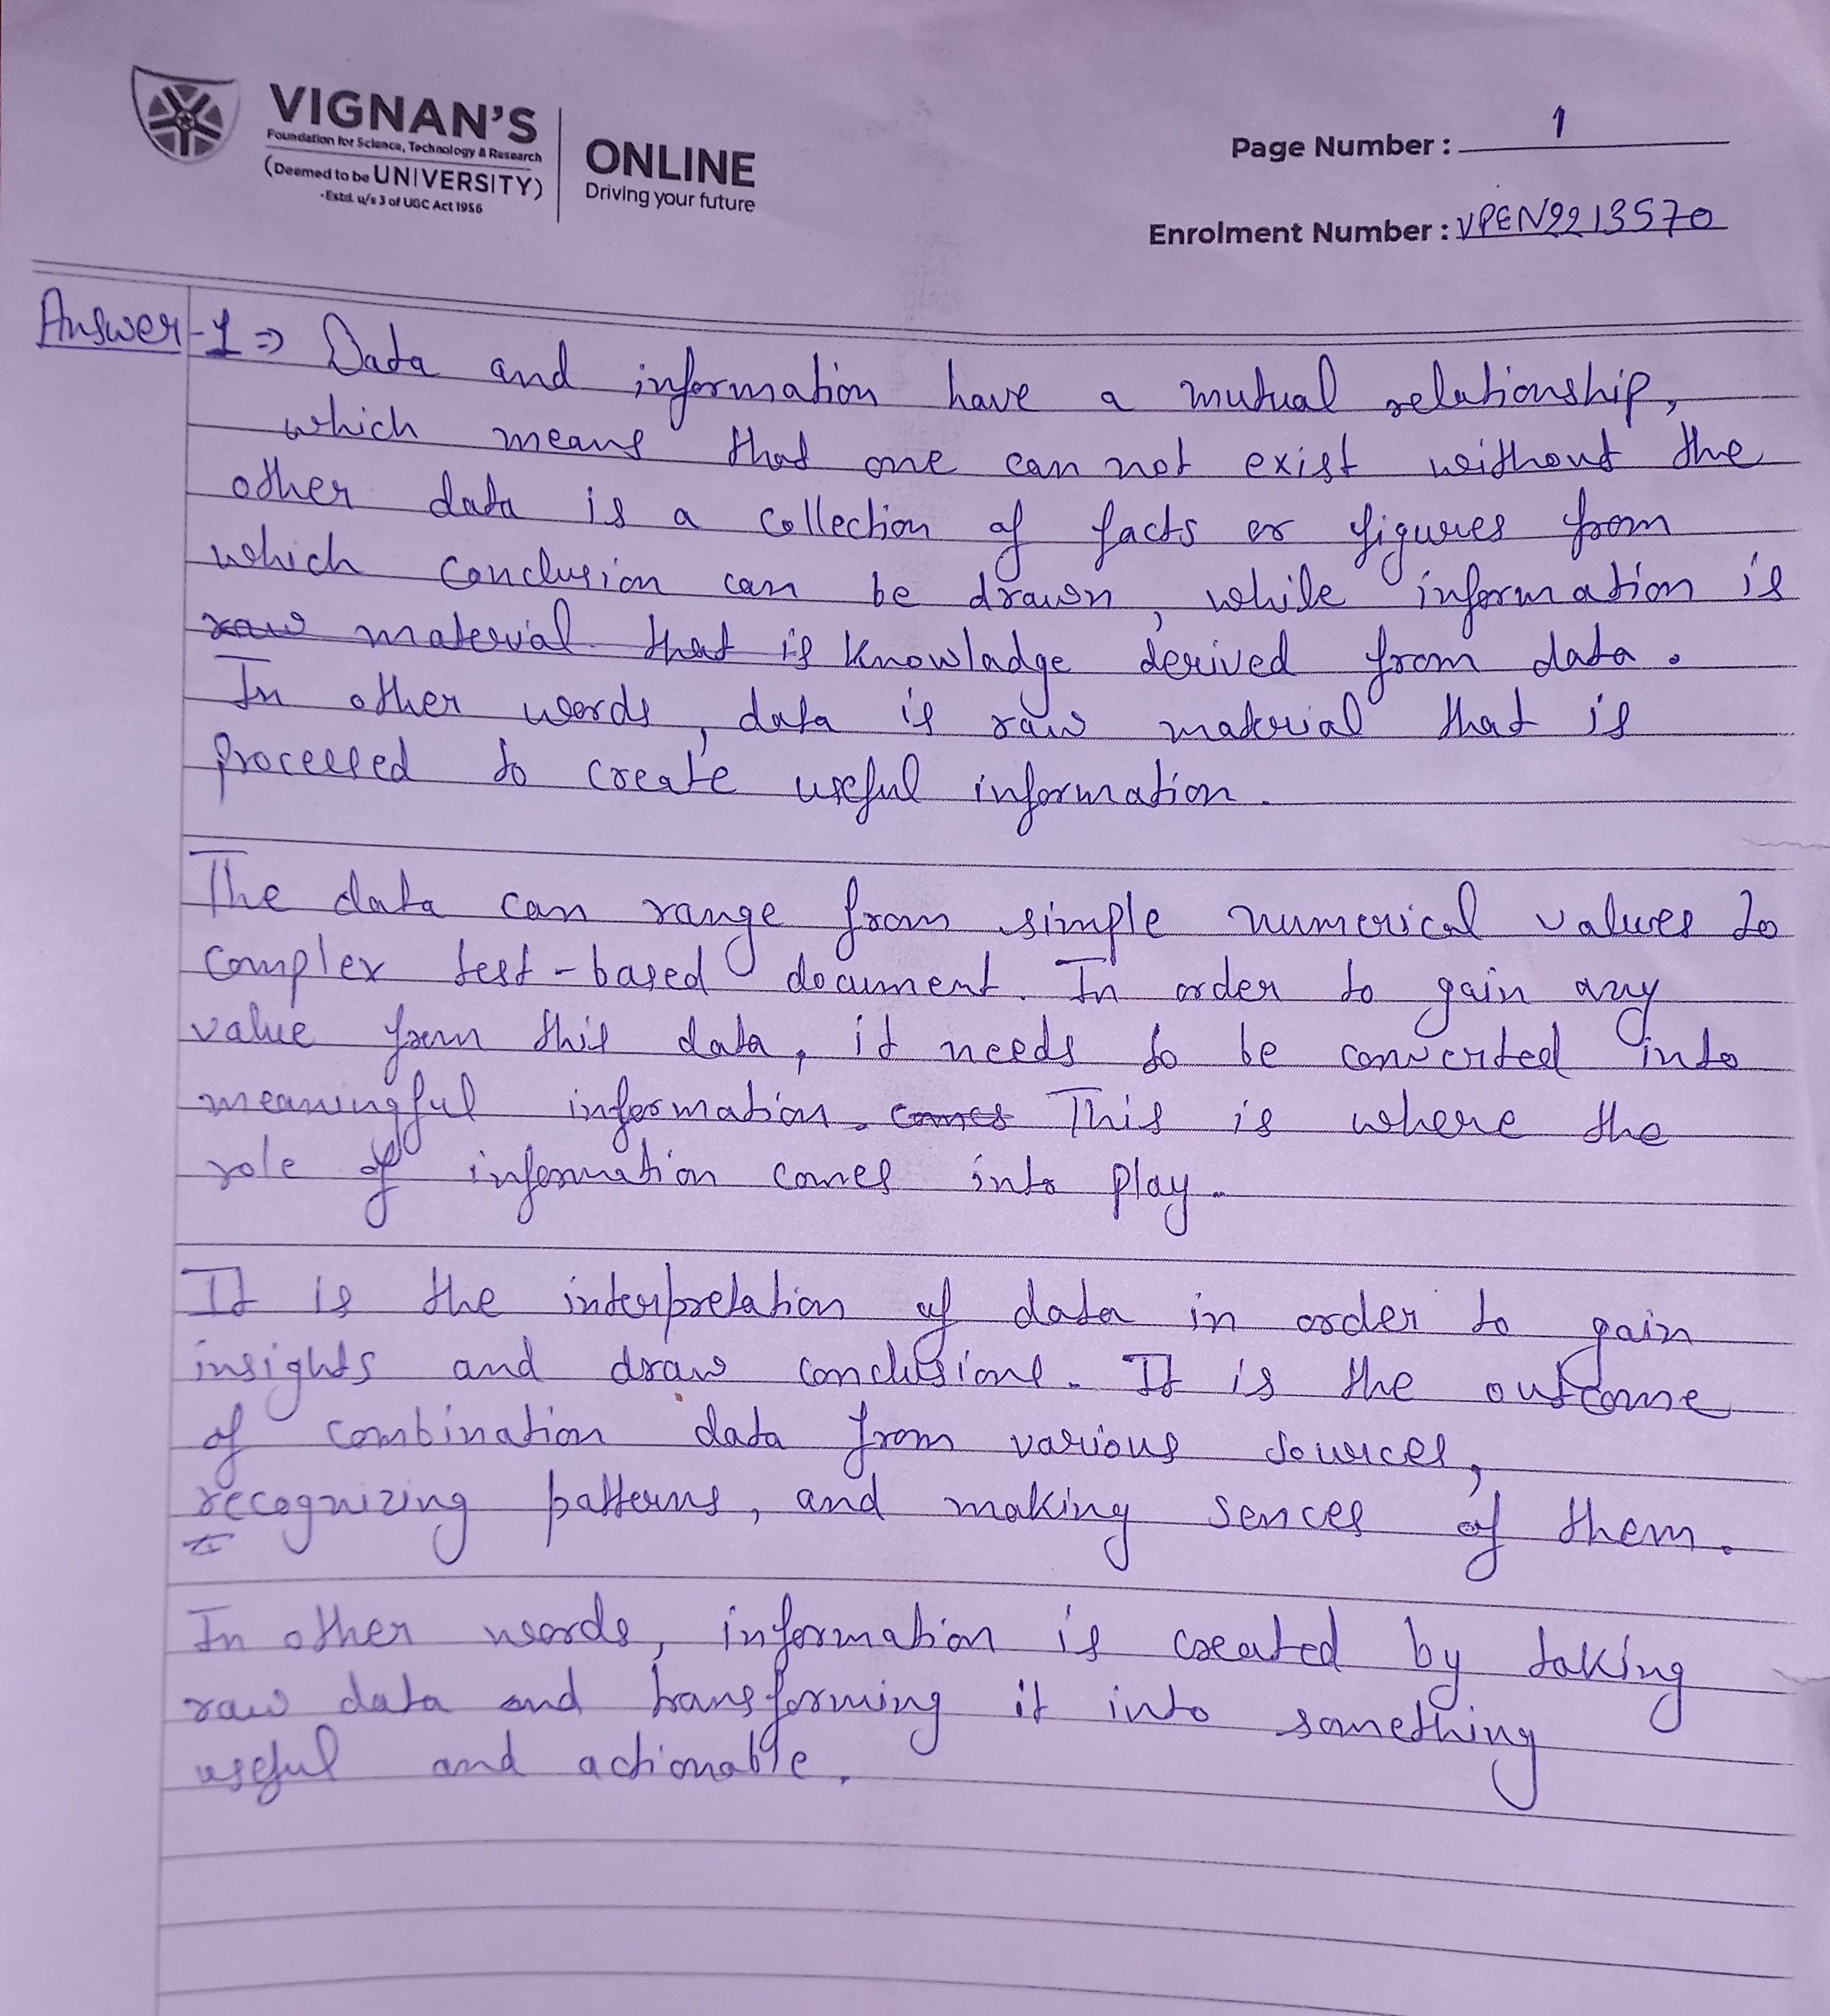 VIGNAN'S
Foundation for Science, Technology & Research
(Deemed to be UNIVERSITY)
-Estd. u/s 3 of UGC Act 1956
ONLINE
Driving your future
Page Number : 1
Enrolment Number : VPEN2213570
Answer-1 ⇒ Data and information have a mutual relationship,
which means that one can not exist without the
other data is a collection of facts or figures from
which conclusion can be drawn, while information is
raw material that is Knowladge derived from data.
In other words, data is raw material that is
processed to create useful information.
The data can range from simple numerical values to
complex test-based document. In order to gain any
value from this data, it needs to be converted into
meaningful information. comes This is where the
role of information comes into play.
It is the interpretation of data in order to gain
insights and draw conclusions. It is the outcome
of combination data from various sources,
recognizing patterns, and making sences of them.
In other words, information is created by taking
raw data and transforming it into something
useful and actionable.